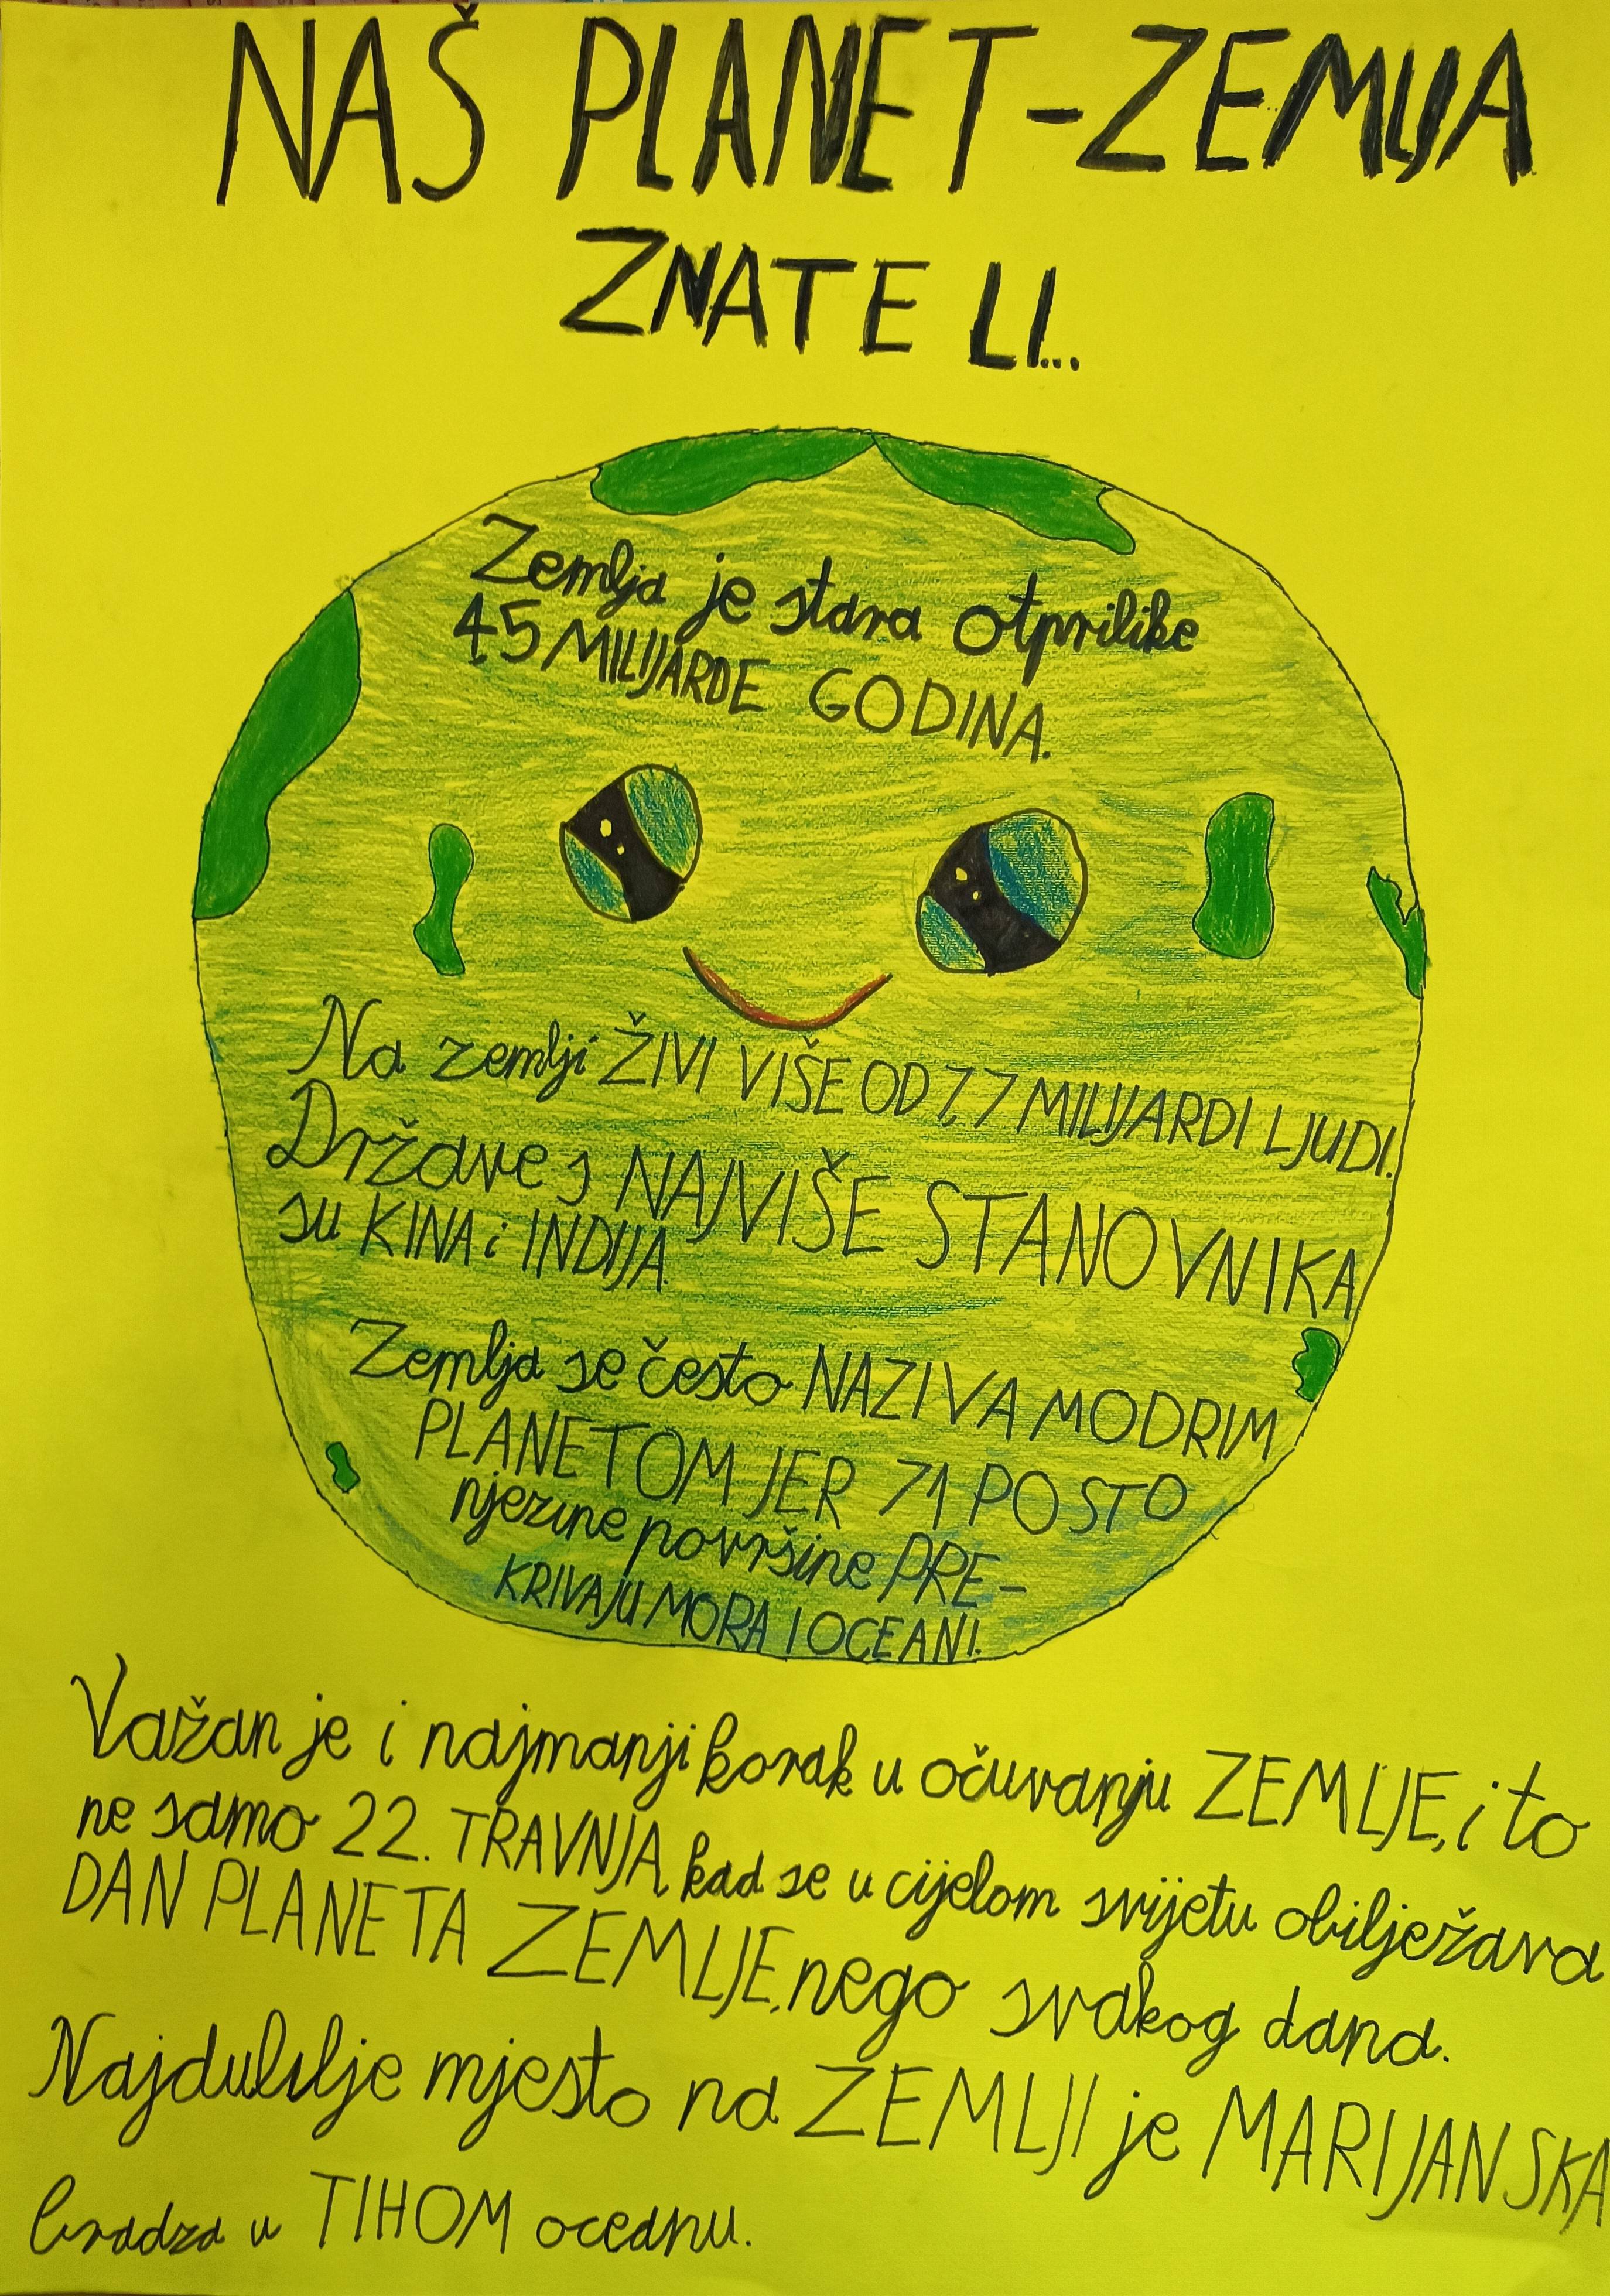 NAŠ PLANET-ZEMLJA
ZNATE LI...
Zemlja je stara otprilike
4,5 MILIJARDE GODINA.
Na zemlji ŽIVI VIŠE OD 7,7 MILIJARDI LJUDI.
Države s NAJVIŠE STANOVNIKA
su KINA i INDIJA.
Zemlja se često NAZIVA MODRIM
PLANETOM JER 71 POSTO
njezine površine PRE-
KRIVAJU MORA I OCEANI.
Važan je i najmanji korak u očuvanju ZEMLJE, i to
ne samo 22. TRAVNJA, kad se u cijelom svijetu obilježava
DAN PLANETA ZEMLJE, nego svakog dana.
mjesto na ZEMLJI je MARIJANSKA
brazda u TIHOM oceanu.